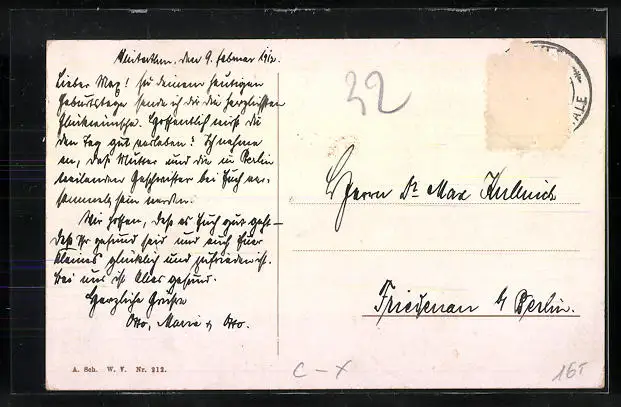 Winterthur, den 9. Februar 1912.
Lieber Max! Zu deinem heutigen
Geburtstage sende ich dir die herzlichsten
Glückwünsche. Hoffentlich wirst du
den Tag gut verleben! Ich nehme
an, daß Mutter und die in Berlin
weilenden Geschwister bei Euch ver-
sammelt sein werden.
Wir hoffen, daß es Euch gut geht
daß Ihr gesund seid und auch Euer
Kleines glücklich und zufrieden ist.
Bei uns ist Alles gesund.
Herzliche Grüße
Otto, Marie & Otto.
A. Sch. W. V. Nr. 212.
32
Herrn Dr. Max
Friedenau b/ Berlin.
C-X
165